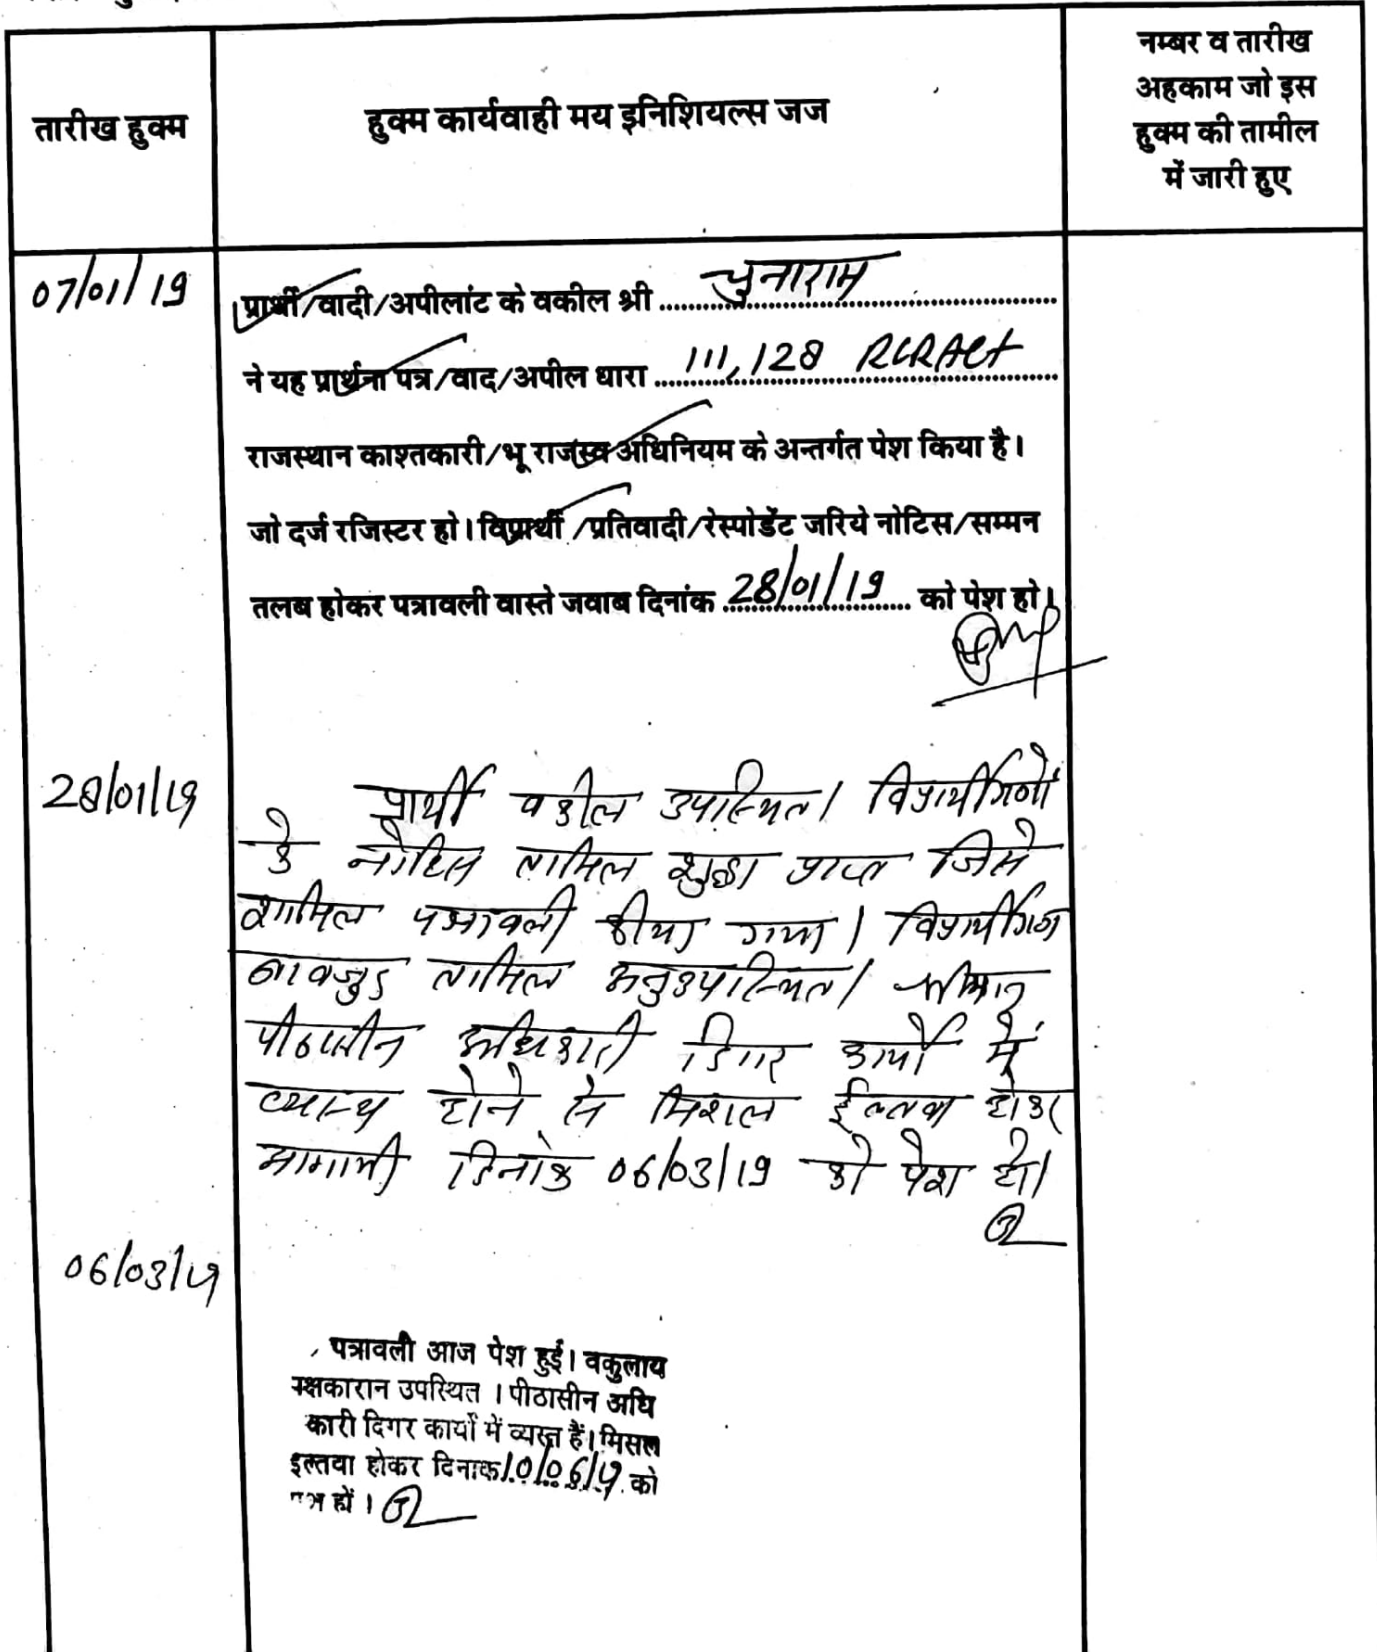 तारीख हुक्म
हुक्म कार्यवाही मय इनिशियल्स जज
नम्बर व तारीख
अहकाम जो इस
हुक्म की तामील
में जारी हुए
07/01/19
प्रार्थी/वादी/अपीलांट के वकील श्री चुनाराम
ने यह प्रार्थना पत्र/वाद/अपील धारा 111, 128 RLR Act
राजस्थान काश्तकारी/भू राजस्व अधिनियम के अन्तर्गत पेश किया है।
जो दर्ज रजिस्टर हो। विप्रार्थी/प्रतिवादी/रेस्पोडेंट जरिये नोटिस/सम्मन
तलब होकर पत्रावली वास्ते जवाब दिनांक 28/01/19 को पेश हो।
28/01/19
प्रार्थी वकील उपस्थित। विप्रार्थीगणो
के नोटिस तामिल शुदा प्राप्त जिसे
शामिल पत्रावली कीया गया। विप्रार्थीगण
बावजुद तामिल अनुउपस्थित। श्रीमान्
पीठासीन अधिकारी दिगर कार्यो में
व्यास्थ होने से मिशल ईल्तवा होकर
आगामी दिनांक 06/03/19 को पेश हो।
06/03/19
पत्रावली आज पेश हुई। वकुलाय
पक्षकारान उपस्थित । पीठासीन अधि
कारी दिगर कार्यों में व्यस्त हैं। मिसल
इल्तवा होकर दिनाक 10/06/19 को
हों ।